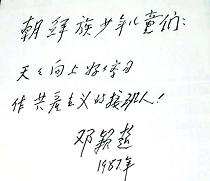 朝鲜族少年儿童们：
天天向上好好学习
作共产主义的接班人！
邓颖超
1987年